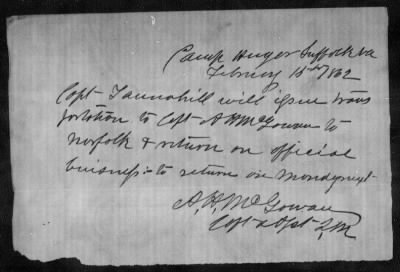 Camp Huger Suffolk Va
Februry 15th/1862
Capt Tannahill will issue trans
portation to Capt A H McGowan to
Norfolk & return on official
buisness to return on Monday next
A, H, McGowan
Capt & Asst Q, M